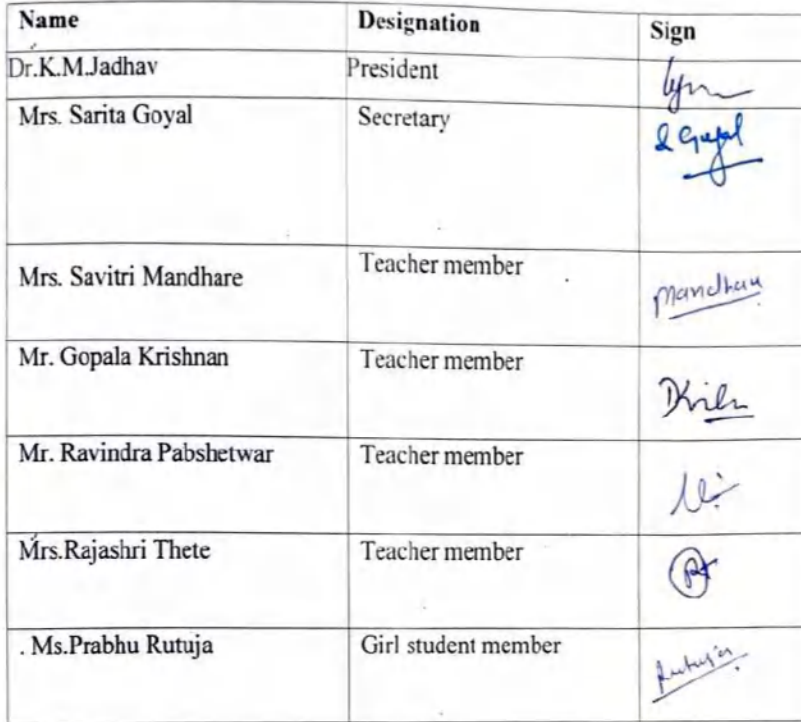 Name Designation Sign
Dr.K.M.Jadhav President
Mrs. Sarita Goyal Secretary S Goyal
Mrs. Savitri Mandhare Teacher member Mandhare
Mr. Gopala Krishnan Teacher member
Mr. Ravindra Pabshetwar Teacher member
Mrs.Rajashri Thete Teacher member
. Ms.Prabhu Rutuja Girl student member Rutuja